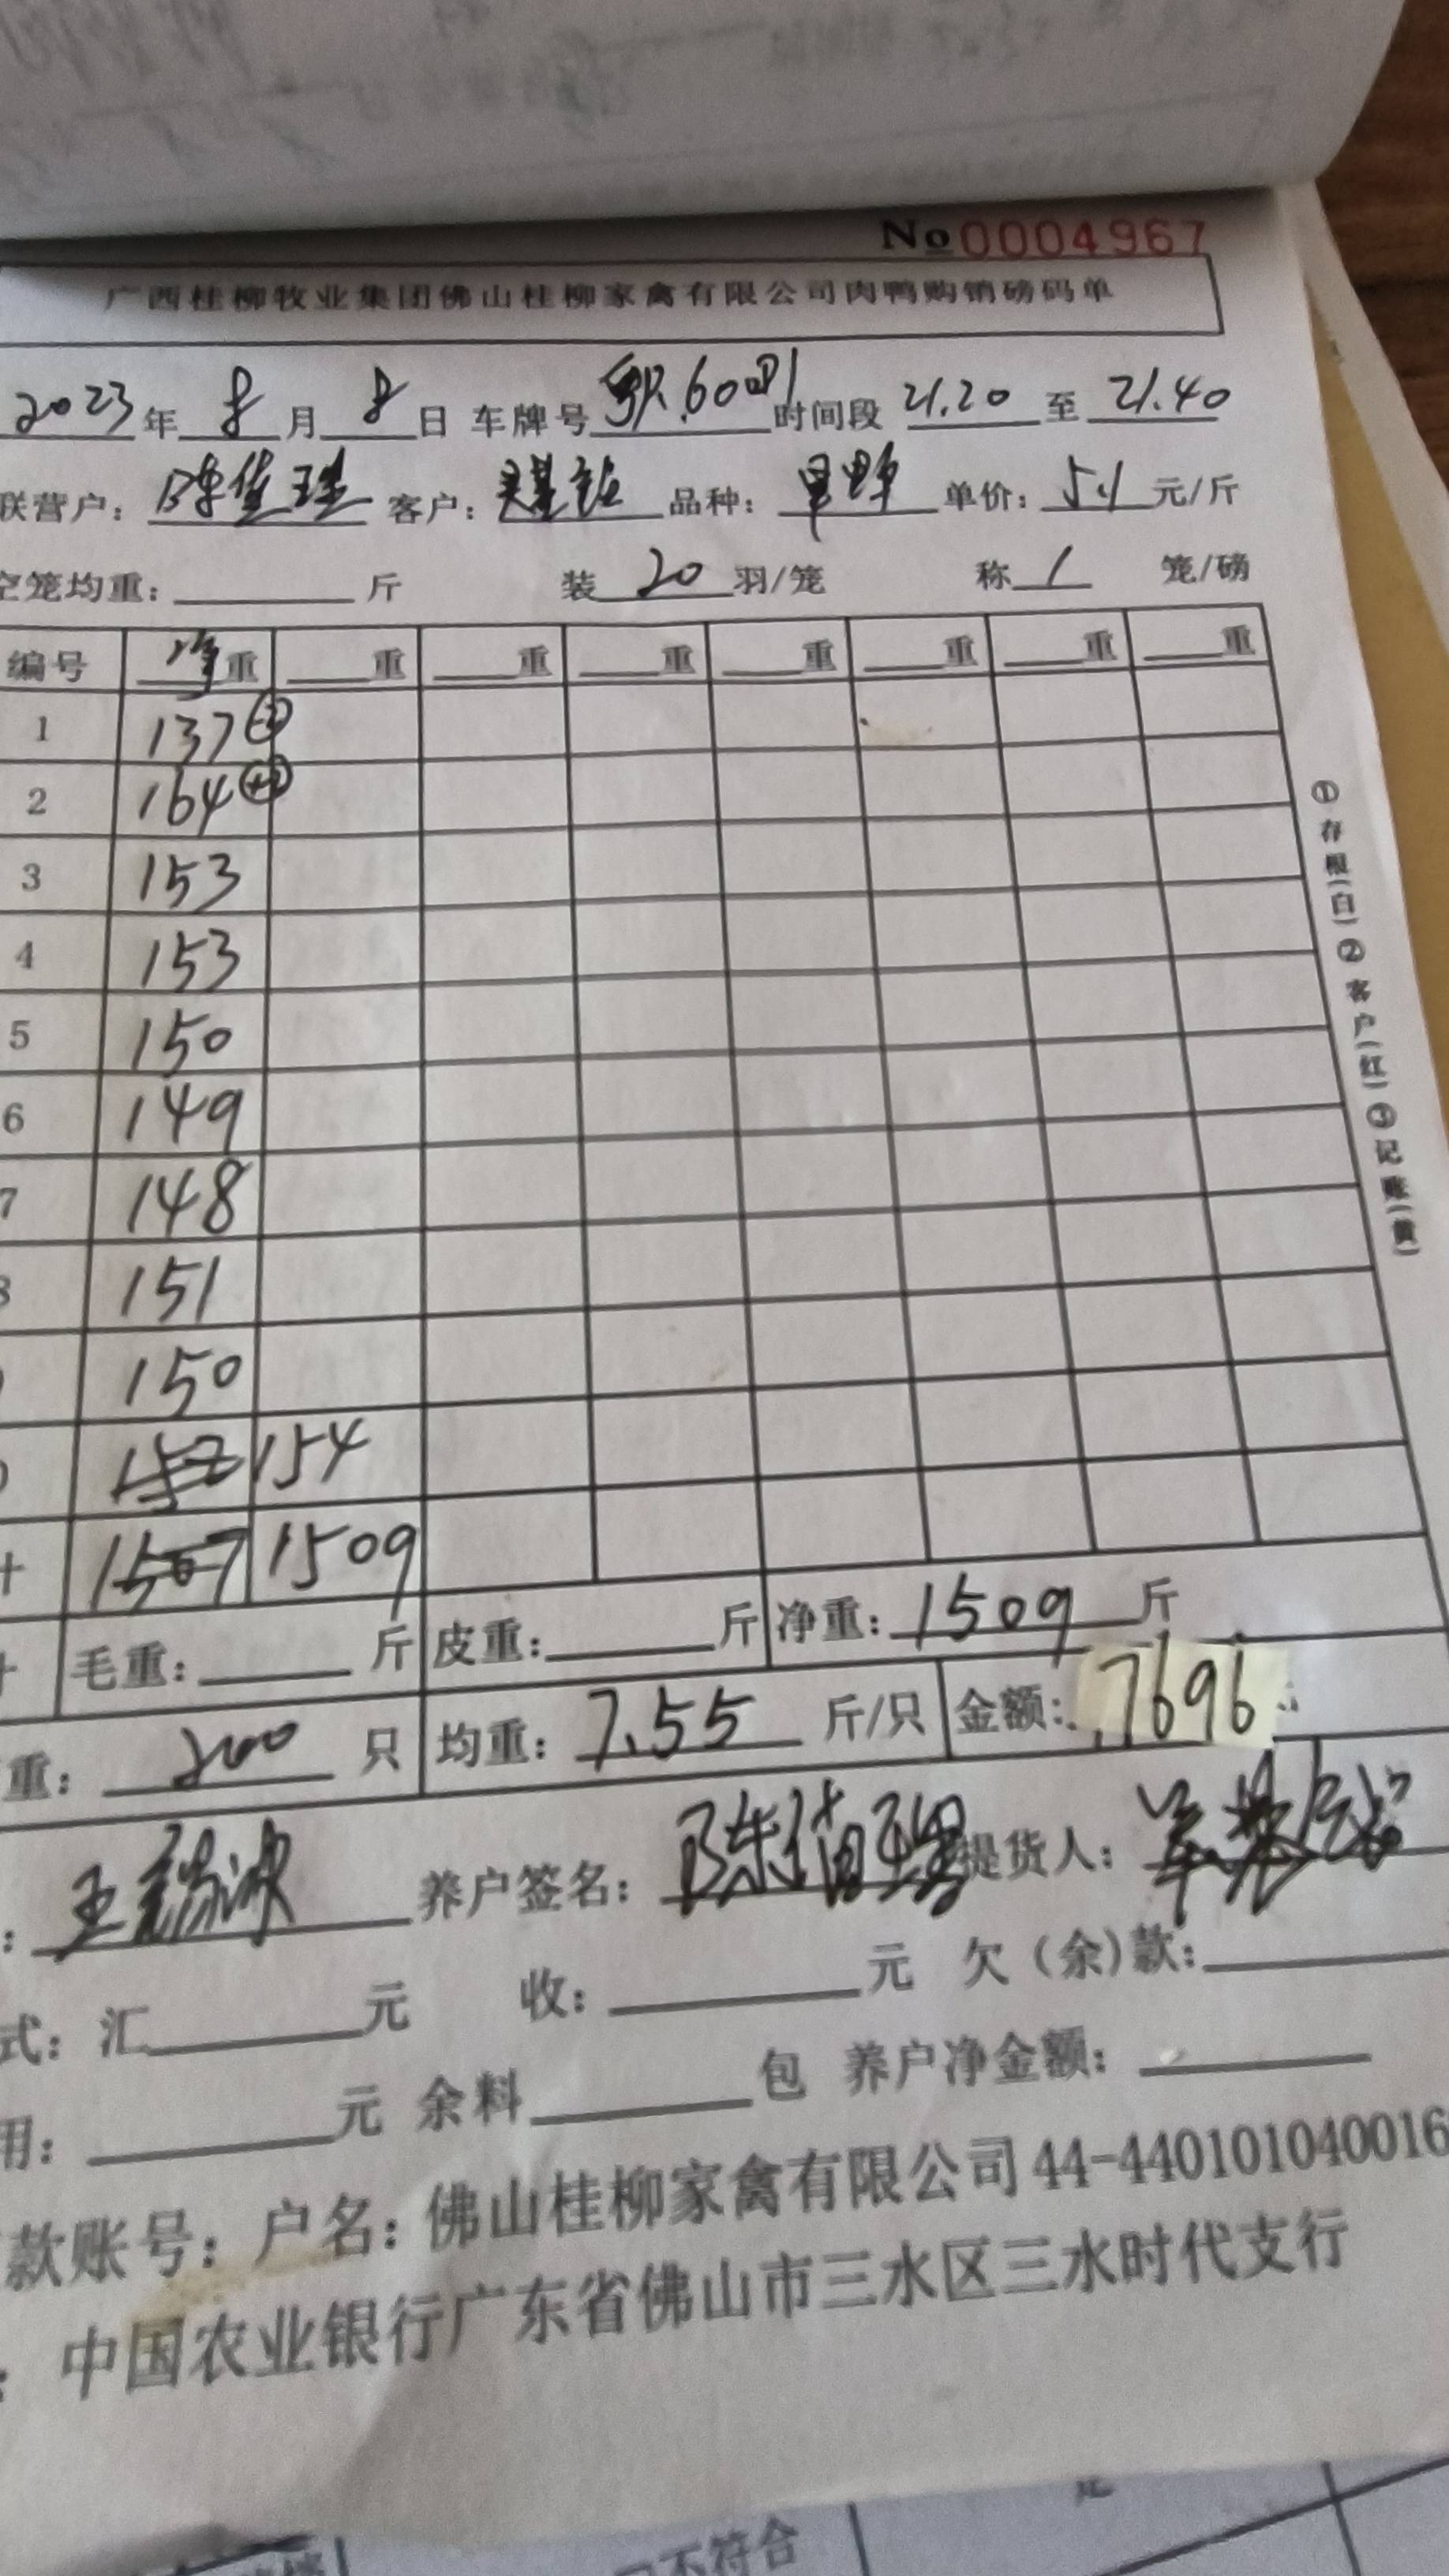 No 0004967
广西桂柳牧业集团佛山桂柳家禽有限公司肉鸭购销磅码单
2023 年 8 月 8 日 车牌号 时间段 21.20 至 21.40
联营户: 客户: 品种: 单价: 5.1 元/斤
空笼均重: 斤 装 20 羽/笼 称 1 笼/磅
编号 净重 重 重 重 重 重 重 重
1 137
2 164
3 153
4 153
5 150
6 149
7 148
8 151
150
152 154
计 1507 1509
计 毛重: 斤 皮重: 斤 净重: 1509 斤
重: 200 只 均重: 7.55 斤/只 金额: 7696
: 养户签名: 提货人:
式: 汇 元 收: 元 欠(余)款:
用: 元 余料 包 养户净金额:
款账号: 户名: 佛山桂柳家禽有限公司 44-440101040016
: 中国农业银行广东省佛山市三水区三水时代支行
①存根(白)②客户(红)③记账(黄)
不符合